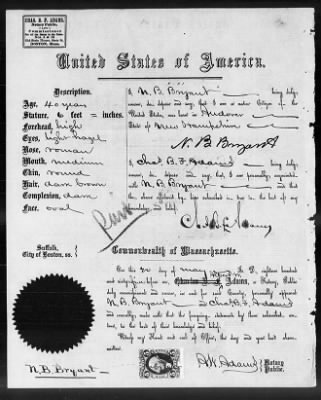 CHAS. B. F. ADAMS,
Notary Public,
Commissioner
BOSTON, Mass.
United States of America.
Description.
Age, 40 years
Stature, 6 feet = inches.
Forehead, high
Eyes, light hazel
Nose, roman
Mouth, medium
Chin, round
Hair, dark brown
Complexion, dark
Face, oval
I N. B. Bryant being duly
sworn, do depose and say, that I am a native Citizen of the
United States, and born in Andover
State of New Hampshire
N. B. Bryant
I Chas. B. F. Adams being duly
sworn, do depose and say, that I am personally acquainted
with N. B. Bryant and that
the above affidavit by him subscribed is true to the best of my
knowledge and belief.
Chas. B. F. Adams
Suffolk,
City of Boston, ss.
Commonwealth of Massachusetts.
On the day of May A. D. eighteen
hundred and before me, Adams, a Notary, Public
duly commissioned and sworn, in and for said County, personally appeared
N. B. Bryant and Chas. B. F. Adams
and severally made oath that the foregoing statements by them subscribed, are
true, to the best of their knowledge and belief.
Witness my Hand and seal of Office, the day and year last above
written.
N. B. Bryant
Adams
Notary
Public.